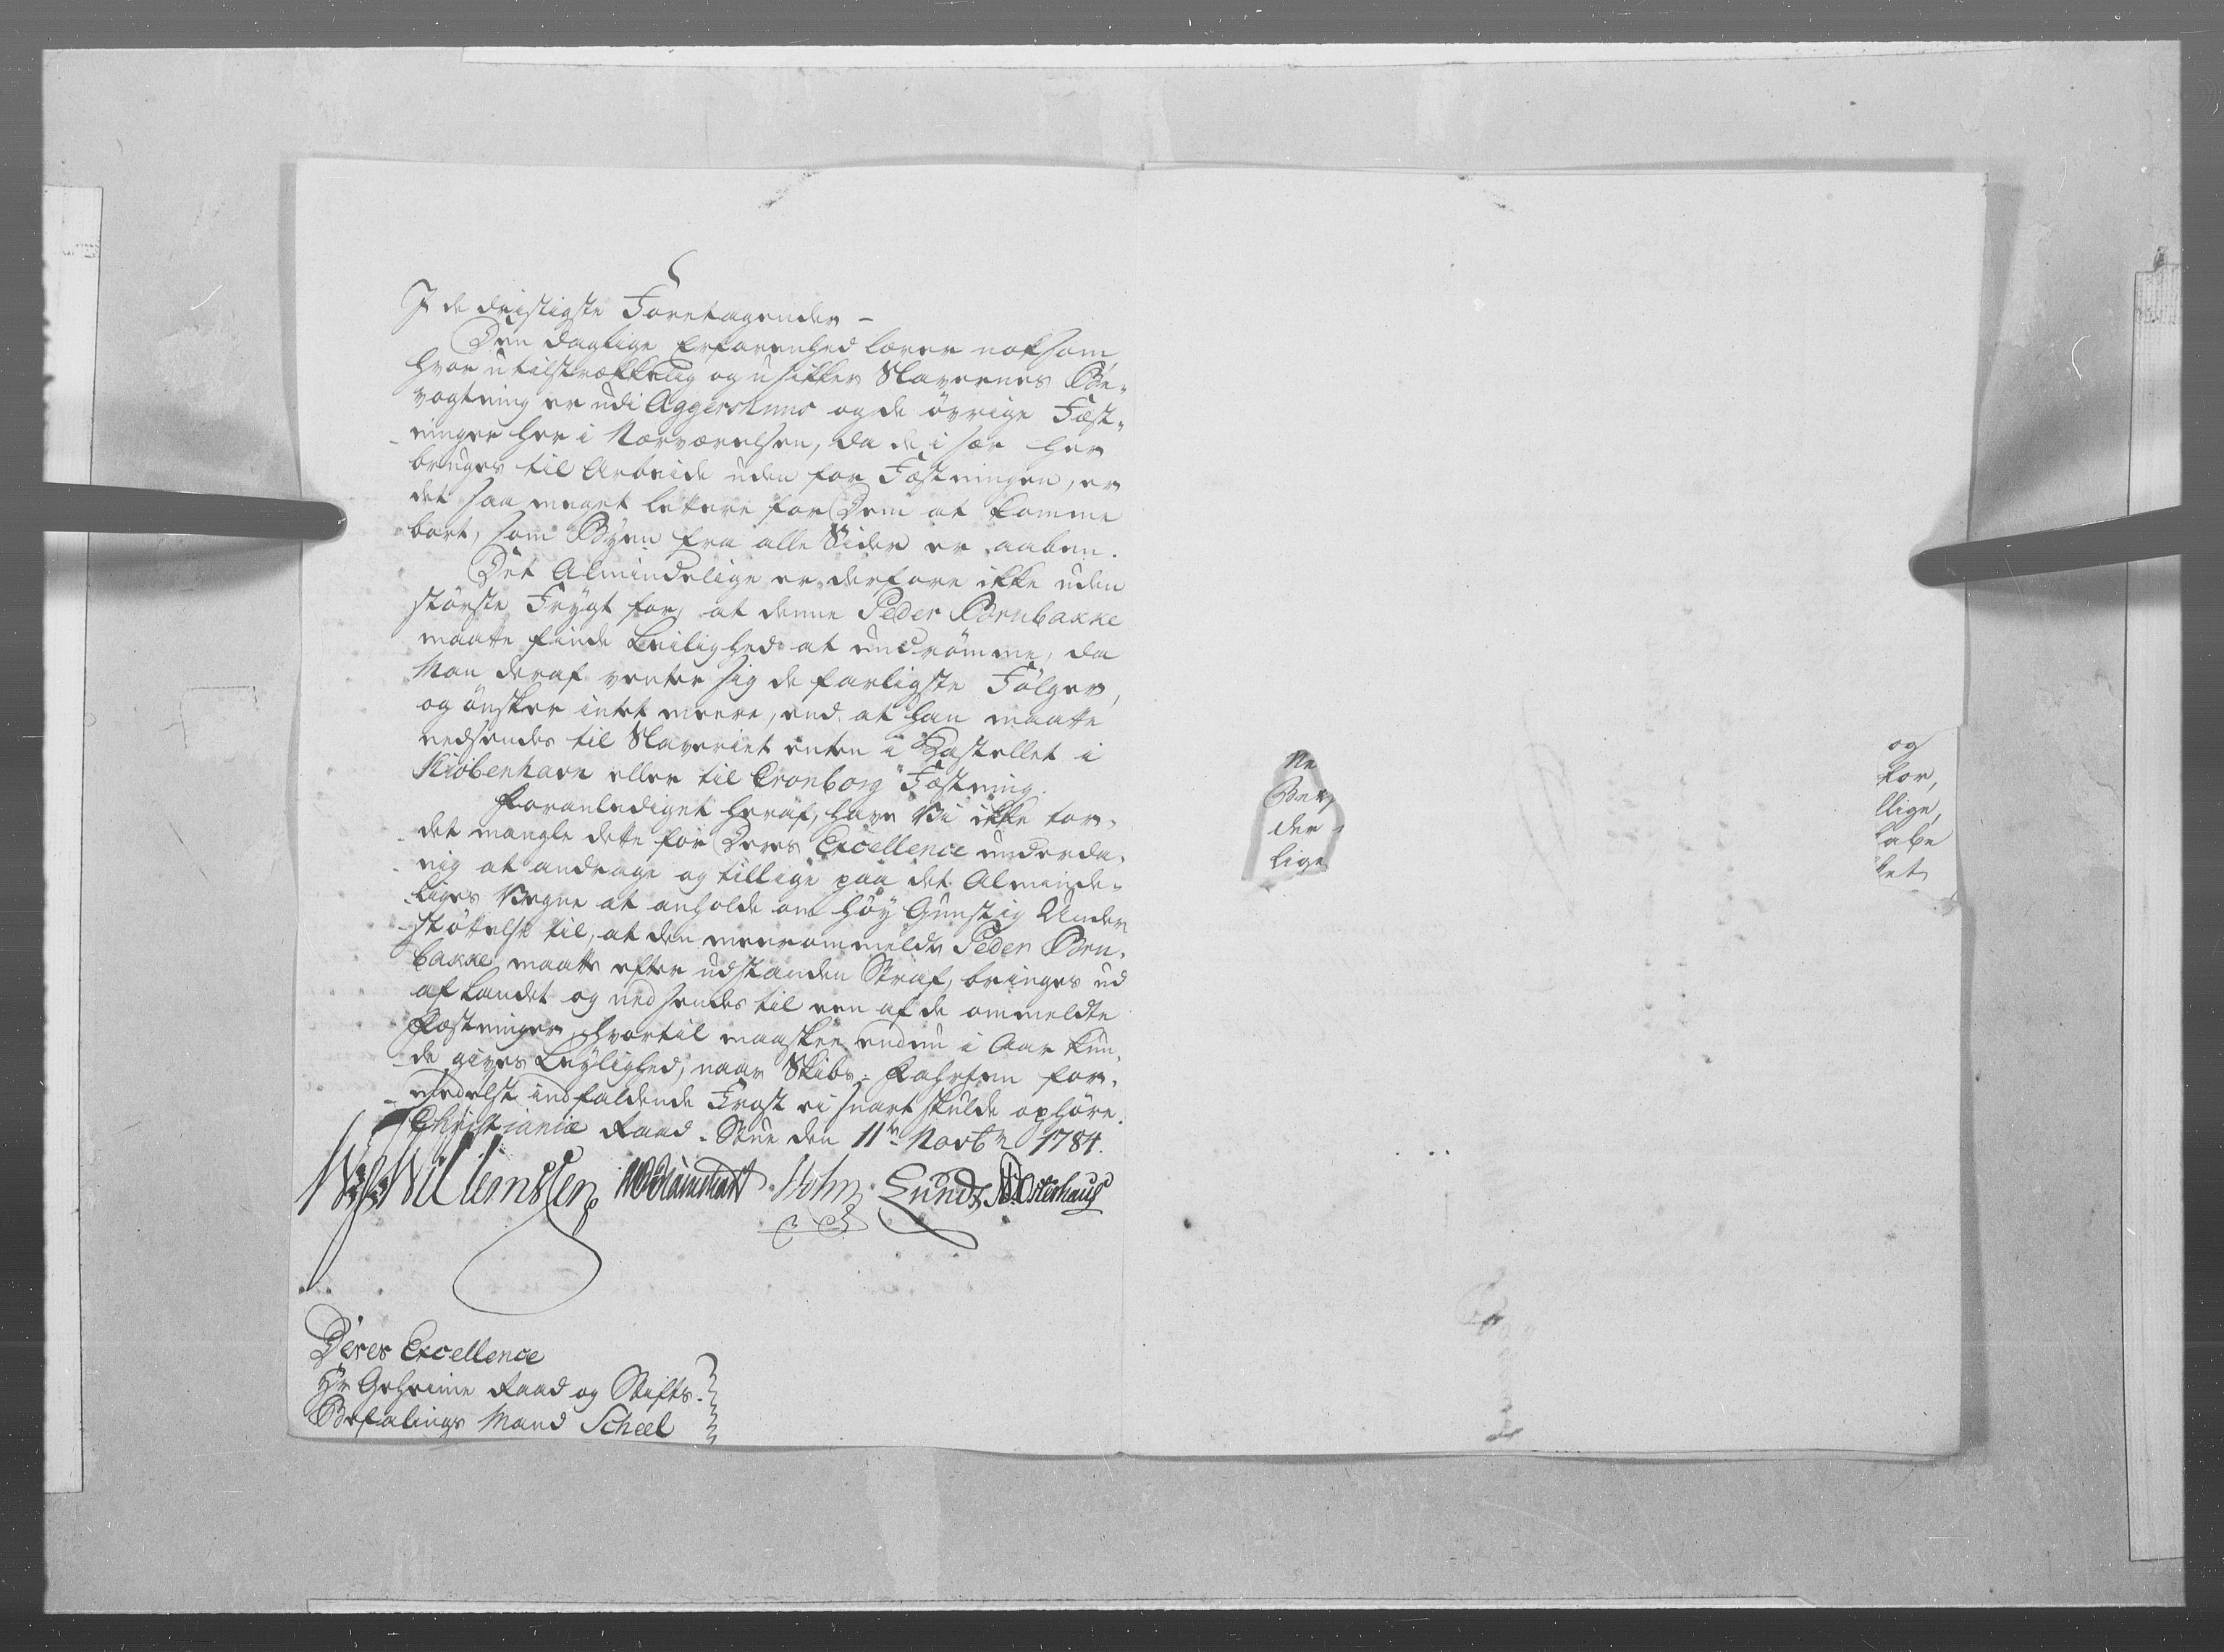 I de dristigste Foretagender –
Den daglige Erfarenhed lærer noksom,
hvor utilstrækkelig og usikker Slavernes Be-
vogtning er udi Aggershuus og de övrige Fæst-
ninger her i Nærværelsen, da de i sær her
bruges til Arbeide uden for Fæstningen, er
det saa meget lettere for Dem at komme
bort, som Byen fra alle Sider er aaben.
Det Almindelige er derfore ikke uden
störste Frygt for, at denne Peder Börnbakke
maatte finde Leilighed at undrömme, da
Man deraf venter sig de farligste Fölger,
og önsker intet meere, end at han maatte
nedsendes til Slaveriet enten i Kastellet i
Kiöbenhavn eller til Cronborg Fæstning.
Foranlediget heraf, have Vi ikke tor-
det mangle dette for Deres Excellence underda-
nig at andrage og tillige paa det Alminde-
liges Vegne at anholde om Höy Gunstig Under
stöttelse til, at den meerommeldte Peder Börn-
bakke maatte efter udstanden Straf, bringes ud
af Landet og ned sendes til een af de ommeldte
Fæstninger, hvortil maaskee endnu i Aar kun-
de gives Leylighed, naar Skibs-Farten for-
medelst indfaldende Frost ei snart skulde ophöre.
Christiania Raad-Stue den 11te Novbr 1784.
Willemssen Hohn Lund Osterhaus
Deres Excellence
Hr Geheime Raad og Stifts-
Befalings Mand Scheel
Ne
Bek
der
lige
og
for,
llige,
kabe
ket